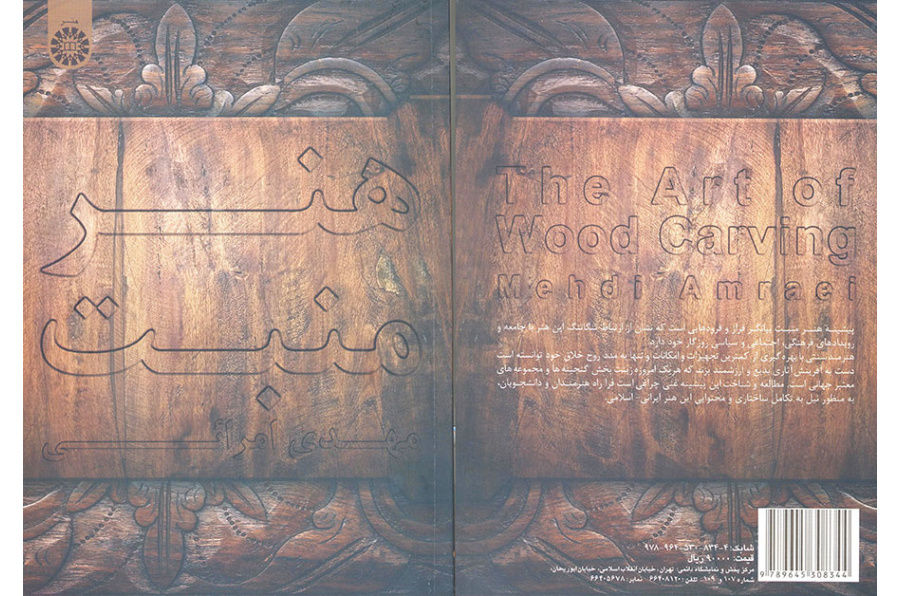 هنر
هنر
منبت
مهدی امرائی
The Art of
Wood Carving
Mehdi Amraei
پیشینهٔ هنر منبت بیانگر فراز و فرودهایی است که نشان از ارتباط تنگاتنگ این هنر با جامعه و
رویدادهای فرهنگی، اجتماعی و سیاسی روزگار خود دارد.
هنرمند سنتی با بهره‌گیری از کمترین تجهیزات و امکانات و تنها به مدد روح خلاق خود توانسته است
دست به آفرینش آثاری بدیع و ارزشمند بزند که هر یک امروزه زینت بخش گنجینه ها و مجموعه های
معتبر جهانی است. مطالعه و شناخت این پیشینه غنی چراغی است فرا راه هنرمندان و دانشجویان،
به منظور نیل به تکامل ساختاری و محتوایی این هنر ایرانی- اسلامی.
شابک: ۴-۸۳۴-۵۳۰-۹۶۴-۹۷۸
قیمت: ۹۰۰۰۰ ریال
مرکز پخش و نمایشگاه دائمی: تهران، خیابان انقلاب اسلامی، خیابان ابوریحان،
شماره ۱۰۷ و ۱۰۹ - تلفن: ۶۶۴۰۸۱۲۰ نمابر: ۶۶۴۰۵۶۷۸
9 789645 308344